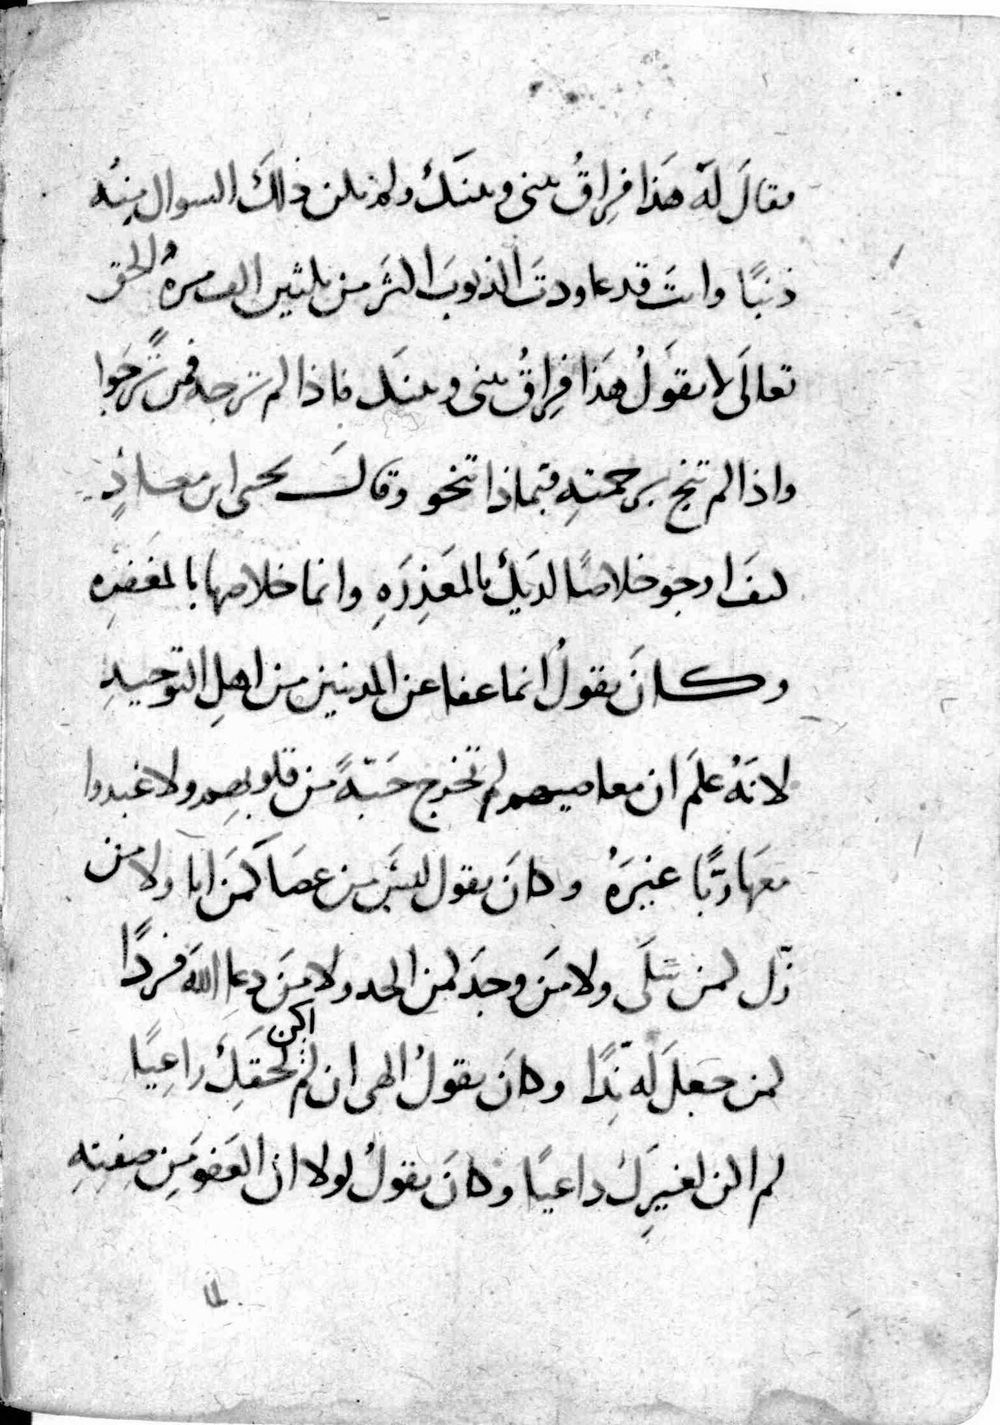 فقالَ لهَ هَذا فِراقُ بينى وبينَكَ ولم يكن ذلكَ السوال مِنهُ
ذنبًا وانت قد عاودتَ الذنوبَ اكثَر من ثلثين الف مرهُ الحق
تعالَى لا يقوَلُ هَذا فِراقُ بينى وبينَك فاذا لم ترجه فمن تَرجوا
واذا لم تنج برحمتهِ فبماذا تنجو وقال يحيى ابن معاذٍ
كيفَ ارجو خلاصًا لديكَ بالمَعذِرَهِ وانما خلاصها بالمغَفِرهِ
وكانَ يقولُ انما عفا عن المذنبين من اهلِ التوحيدِ
لانهُ علَم ان معاصيهم لم تخرج حَبّةً من قلوبهِم ولا عَبدوا
معَها ربًّا غيرَهُ وكانَ يقول ليسَ من عصَا كمَن ابا ولا من
زلّ كمن تَولَّى ولا مَن وجدَ كمن الحد ولا مَن دعا اللهَ فردًا
كمن جعلَ لَه نِدًّا وكانَ يقولُ الهى ان لم اكن لحقِكَ راعِيًا
لم اكن لغيرِكَ داعيًا وكانَ يقولُ لولا ان العَفو مِن صِفتِهِ